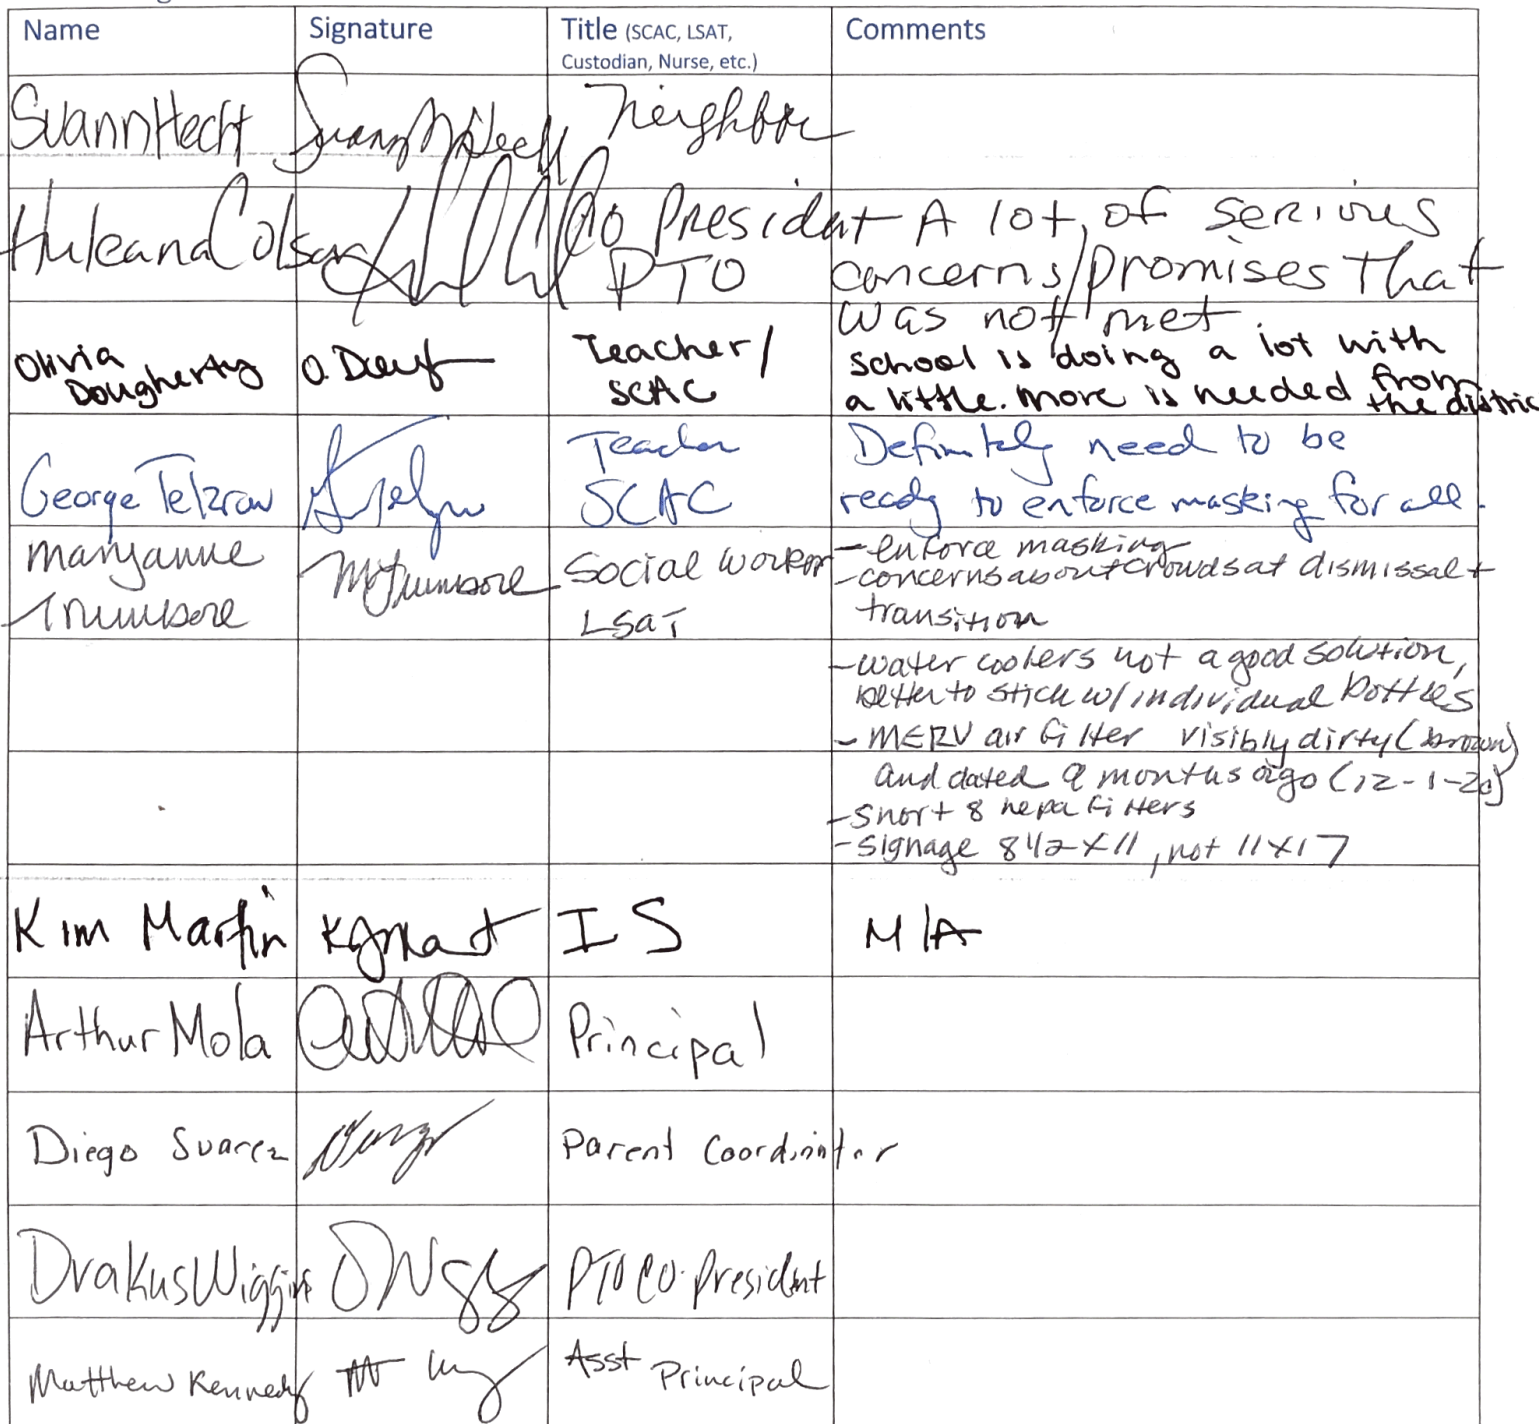 Name Signature Title (SCAC, LSAT, Comments
Custodian, Nurse, etc.)
Suann Hecht Neighbor
Huleana Colson Co President A lot of serious
PTO concerns/promises that
was not met
Olivia Teacher/ School is doing a lot with
Dougherty SCAC a little. More is needed from
the district
George Telzrow Teacher Definitely need to be
SCAC ready to enforce masking for all.
Maryanne Social Worker - enforce masking
Trumbore LSAT - concerns about crowds at dismissal +
transition
- water coolers not a good solution,
better to stick w/ individual bottles
- MERV air filter visibly dirty (brown)
and dated 9 months ago (12-1-20)
- short 8 hepa filters
- signage 8 1/2 x 11, not 11x17
Kim Martin IS N/A
Arthur Mola Principal
Diego Suarez Parent Coordinator
Drakus Wiggins PTO CO-President
Matthew Kennedy Asst Principal